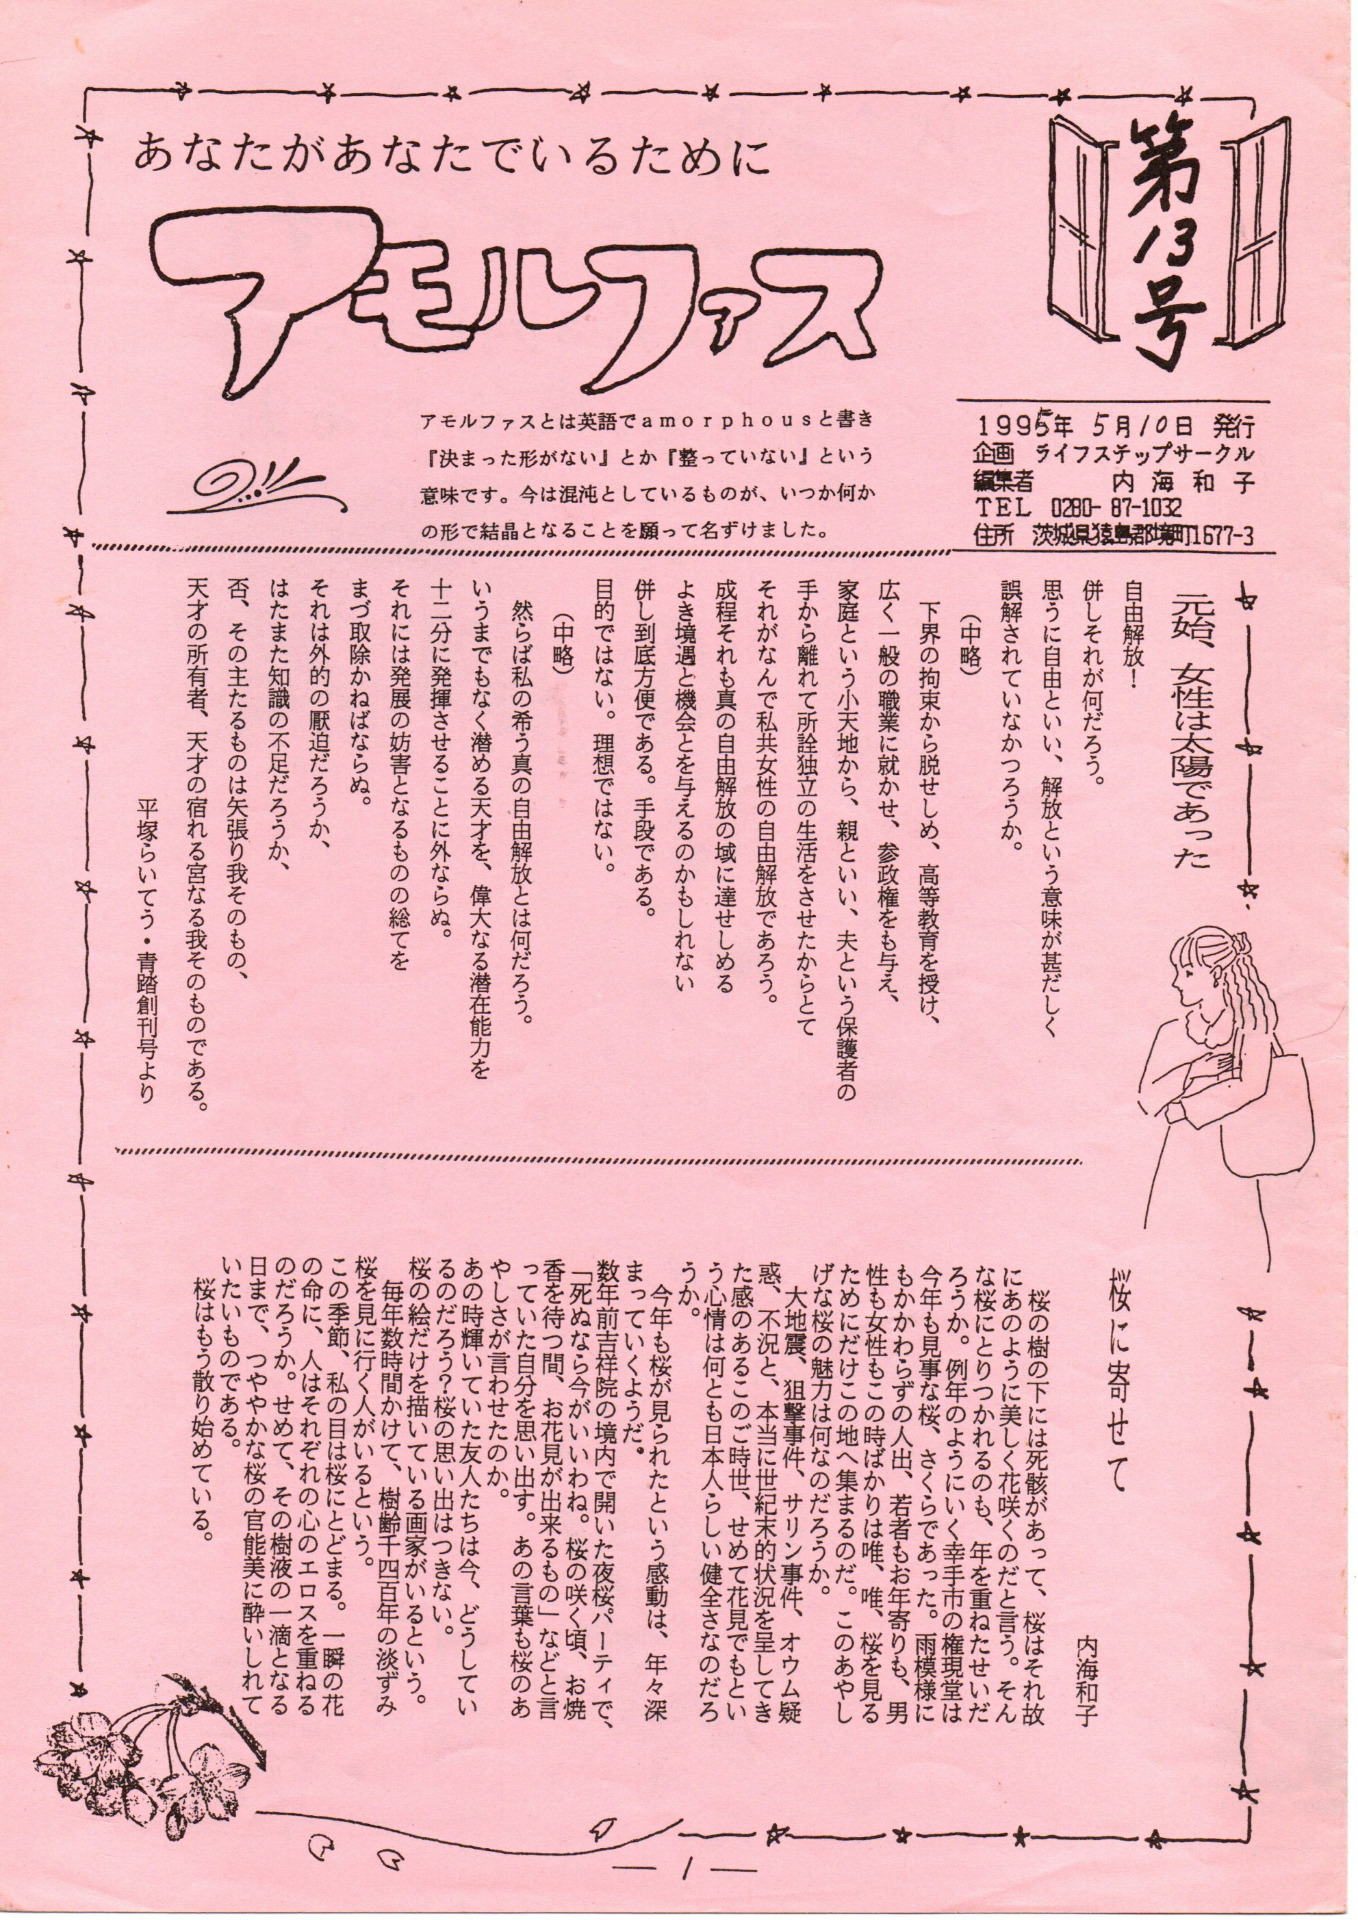 あなたがあなたでいるために
アモルファス
第13号
アモルファスとは英語でamorphousと書き
『決まった形がない』とか『整っていない』という
意味です。今は混沌としているものが、いつか何か
の形で結晶となることを願って名ずけました。
1995年 5月10日 発行
企画 ライフステップサークル
編集者 内海和子
TEL 0280-87-1032
住所 茨城県猿島郡境町1677-3
元始、女性は太陽であった
自由解放！
併しそれが何だろう。
思うに自由といい、解放という意味が甚だしく
誤解されていなかつろうか。
（中略）
下界の拘束から脱せしめ、高等教育を授け、
広く一般の職業に就かせ、参政権をも与え、
家庭という小天地から、親といい、夫という保護者の
手から離れて所詮独立の生活をさせたからとて
それがなんで私共女性の自由解放であろう。
成程それも真の自由解放の域に達せしめる
よき境遇と機会とを与えるのかもしれない
併し到底方便である。手段である。
目的ではない。理想ではない。
（中略）
然らば私の希う真の自由解放とは何だろう。
いうまでもなく潜める天才を、偉大なる潜在能力を
十二分に発揮させることに外ならぬ。
それには発展の妨害となるものの総てを
まづ取除かねばならぬ。
それは外的の厭迫だろうか、
はたまた知識の不足だろうか、
否、その主たるものは矢張り我そのもの、
天才の所有者、天才の宿れる宮なる我そのものである。
平塚らいてう・青踏創刊号より
桜に寄せて
内海和子
桜の樹の下には死骸があって、桜はそれ故
にあのように美しく花咲くのだと言う。そん
な桜にとりつかれるのも、年を重ねたせいだ
ろうか。例年のようにいく幸手市の権現堂は
今年も見事な桜、さくらであった。雨模様に
もかかわらずの人出、若者もお年寄りも、男
性も女性もこの時ばかりは唯、唯、桜を見る
ためにだけこの地へ集まるのだ。このあやし
げな桜の魅力は何なのだろうか。
大地震、狙撃事件、サリン事件、オウム疑
惑、不況と、本当に世紀末的状況を呈してき
た感のあるこのご時世、せめて花見でもとい
う心情は何とも日本人らしい健全さなのだろ
うか。
今年も桜が見られたという感動は、年々深
まっていくようだ。
数年前吉祥院の境内で開いた夜桜パーティで、
「死ぬなら今がいいわね。桜の咲く頃、お焼
香を待つ間、お花見が出来るもの」などと言
っていた自分を思い出す。あの言葉も桜のあ
やしさが言わせたのか。
あの時輝いていた友人たちは今、どうしてい
るのだろう？桜の思い出はつきない。
桜の絵だけを描いている画家がいるという。
毎年数時間かけて、樹齢千四百年の淡ずみ
桜を見に行く人がいるという。
この季節、私の目は桜にとどまる。一瞬の花
の命に、人はそれぞれの心のエロスを重ねる
のだろうか。せめて、その樹液の一滴となる
日まで、つややかな桜の官能美に酔いしれて
いたいものである。
桜はもう散り始めている。
― 1 ―